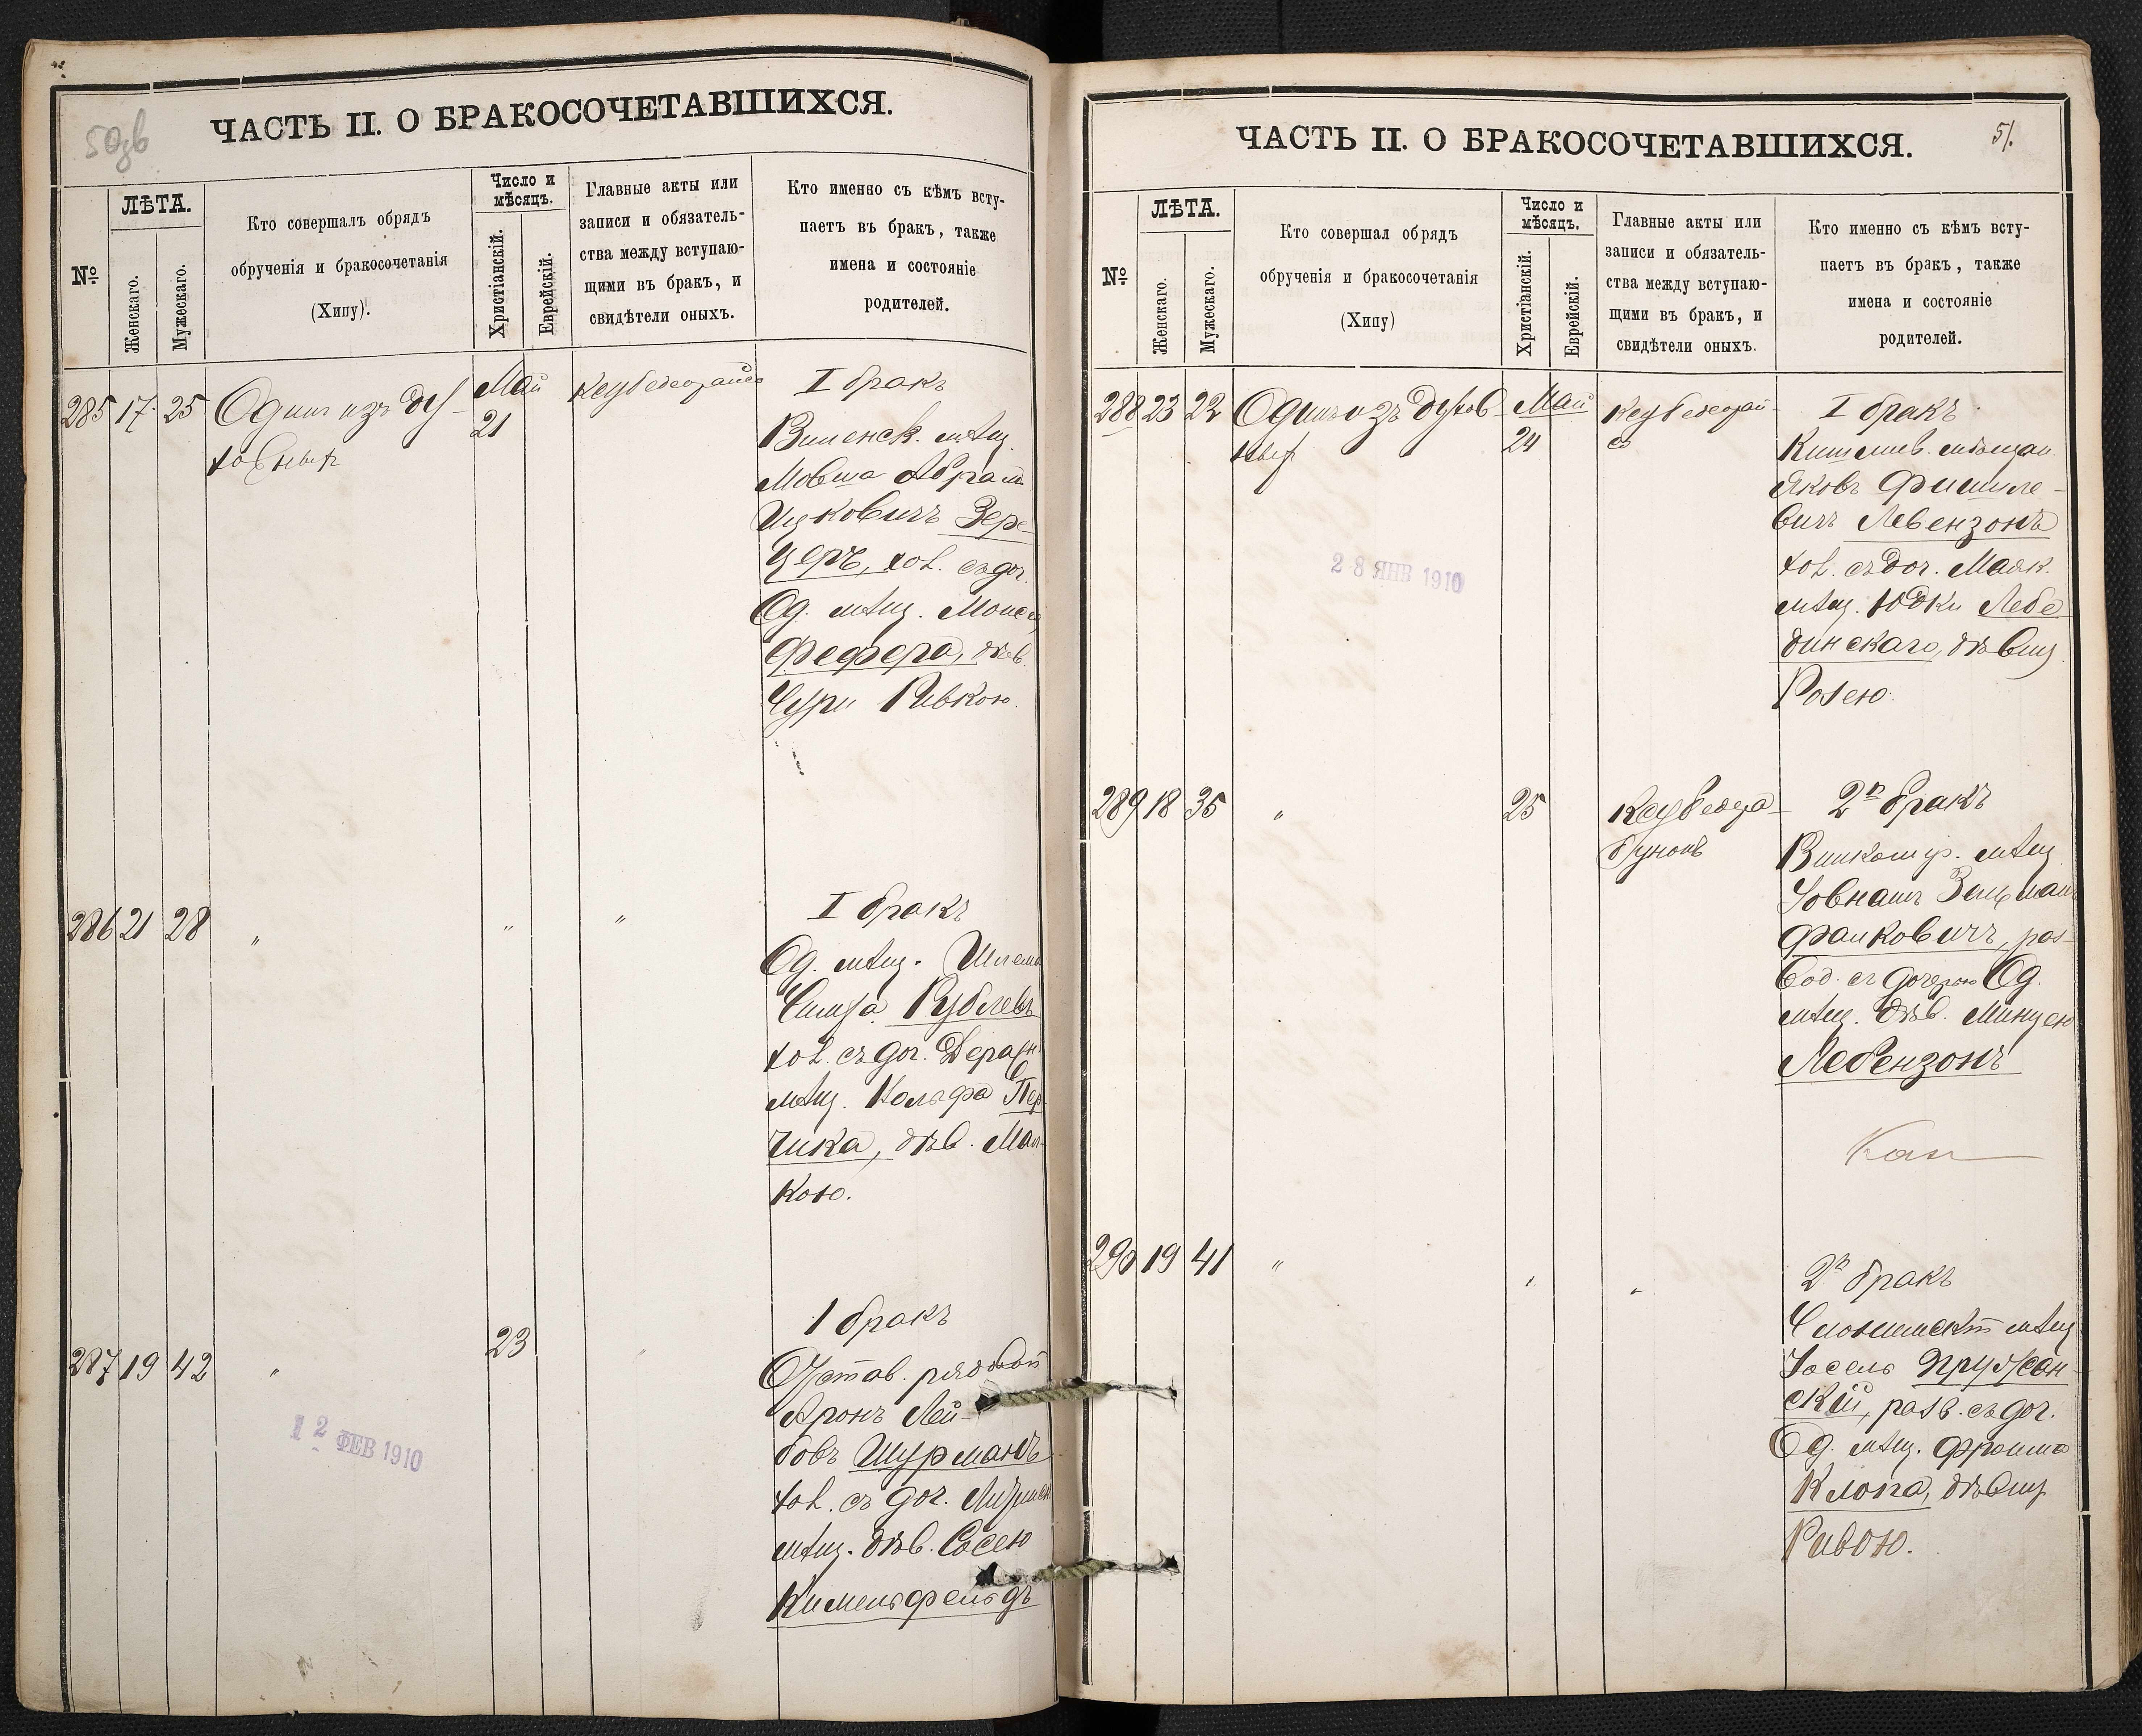 50зв
ЧАСТЬ II. О БРАКОСОЧЕТАВШИХСЯ.
№
ЛѢТА.
Женскаго.
Мужескаго.
Кто совершалъ обрядъ
обрученія и бракосочетанія
(Хипу).
Число и
мѣсяцъ.
Христіанскій.
Еврейскій.
Главные акты или
записи и обязатель-
ства между вступаю-
щими въ бракъ, и
свидѣтели оныхъ.
Кто именно съ кѣмъ всту-
паетъ въ бракъ, также
имена и состояніе
родителей.
285 17 25 Одинъ изъ ду-
ховныхъ
Май
21
I бракъ
Виленск. мѣщ.
Мовша Абрамъ
Ицковичъ Зере-
церъ, хол. съ доч.
Од. мѣщ. Моисея
Фефера, дѣв.
Сури Ривкою.
286 21 28 " " "
I бракъ
Од. мѣщ. Шлема
Симха Рублевъ
хол. съ доч. Деражн.
мѣщ. Кольфа Пер-
чика, дѣв. Мал-
кою.
287 19 42 " 23 "
1 бракъ
Отстав. рядовой
Аронъ Лей-
бовъ Шурманъ
хол. съ доч.
мѣщ. дѣв. Сосею
Кимельфельдъ
12 ФЕВ 1910
51.
ЧАСТЬ II. О БРАКОСОЧЕТАВШИХСЯ.
№
ЛѢТА.
Женскаго.
Мужескаго.
Кто совершал обрядъ
обрученія и бракосочетанія
(Хипу)
Число и
мѣсяцъ.
Христіанскій.
Еврейскій.
Главные акты или
записи и обязатель-
ства между вступаю-
щими въ бракъ, и
свидѣтели оныхъ.
Кто именно съ кѣмъ всту-
паетъ въ бракъ, также
имена и состояніе
родителей.
288 23 22 Одинъ изъ духов-
ныхъ
Май
24
I бракъ
Кишинев. мѣщан.
Яковъ Фишиле-
вичъ Левензонъ
хол. съ доч. Маяк.
мѣщ. Юдки Лебе
динскаго, дѣвиц
Розею.
28 ЯНВ 1910
289 18 35 " 25
2й бракъ
мѣщ
Зельман
Фалковичъ, раз-
вод. съ дочерью Од.
мѣщ. дѣв. Минцею
Лебензонъ
290 19 41 " " "
2й бракъ
Слонимскій мѣщ
Іосель Пружан-
скій, разв. съ доч.
Од. мѣщ. Фроима
Клопа, дѣвиц
Ривою.